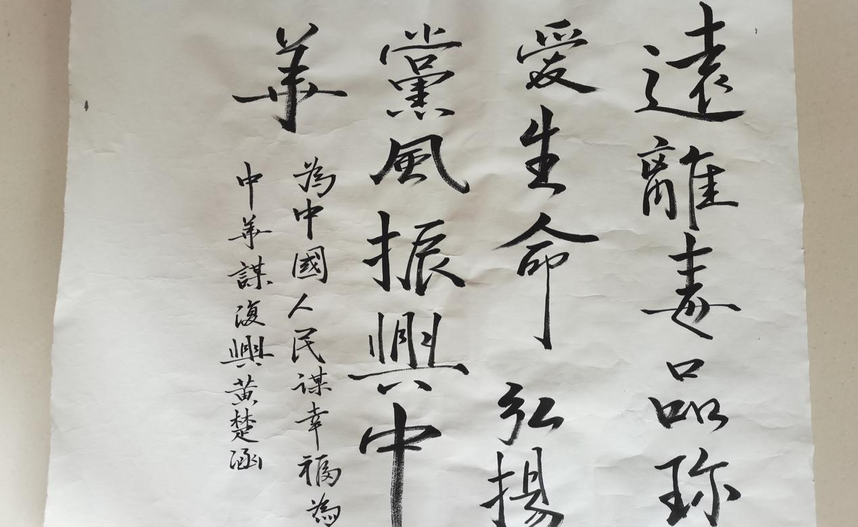 遠離毒品珍
愛生命弘揚
黨風振興中
華
為中國人民謀幸福為
中華謀復興黃楚涵